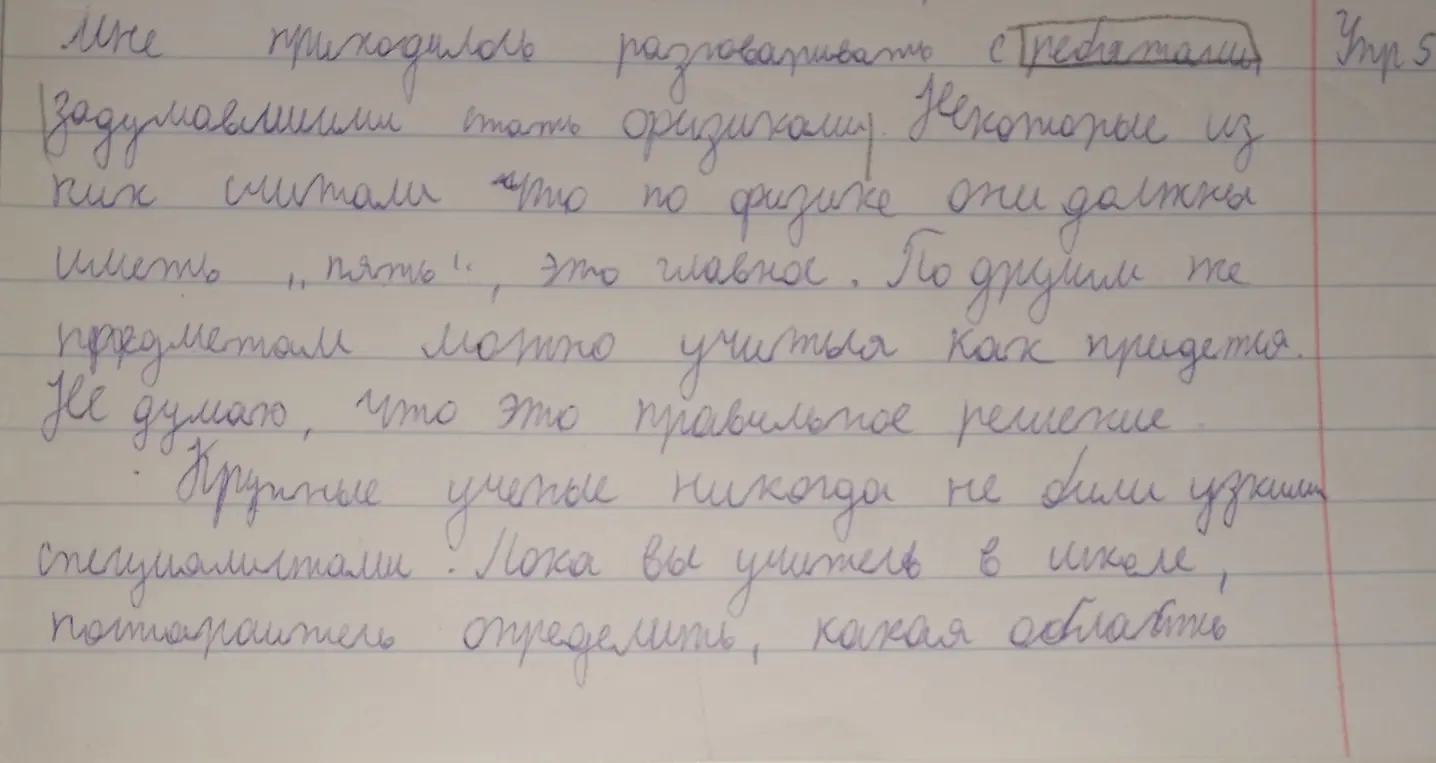 Мне приходилось разговаривать с ребятами Упр 5
задумавшими стать физиками. Некоторые из
них считали что по физике они должны
иметь „пять“, это главное. По другим же
предметам можно учиться как придется.
Не думаю, что это правильное решение.
Крупные ученые никогда не были узкими
специалистами. Пока вы учитесь в школе,
постарайтесь определить, какая область